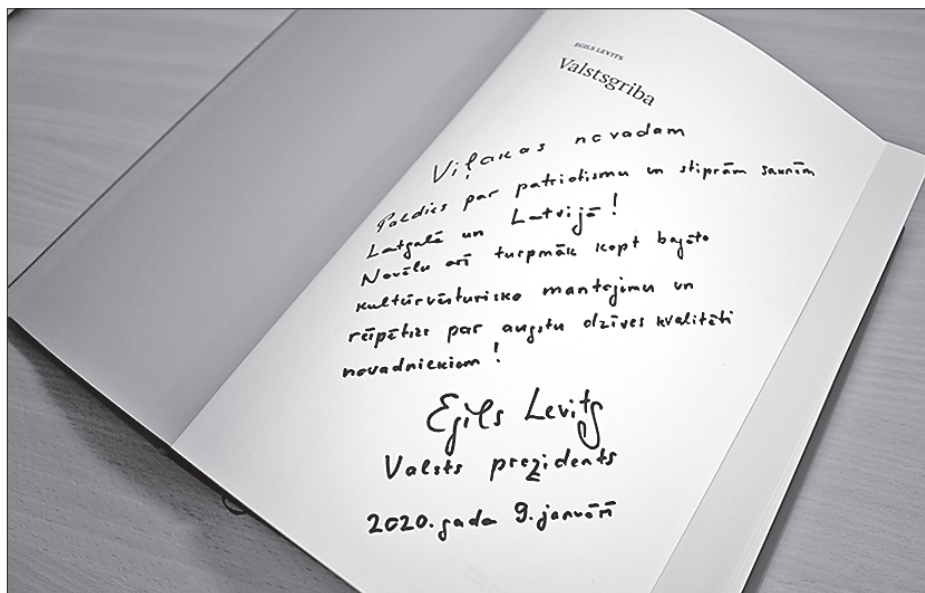 EGILS LEVITS
Valstsgriba
Viļakas novadam
Paldies par patriotismu un stiprām saknēm
Latgalē un Latvijā!
Novēlu arī turpmāk kopt bagāto
kultūrvēsturisko mantojumu un
rūpēties par augstu dzīves kvalitāti
novadniekiem!
Egils Levits
Valsts prezidents
2020. gada 9. janvārī